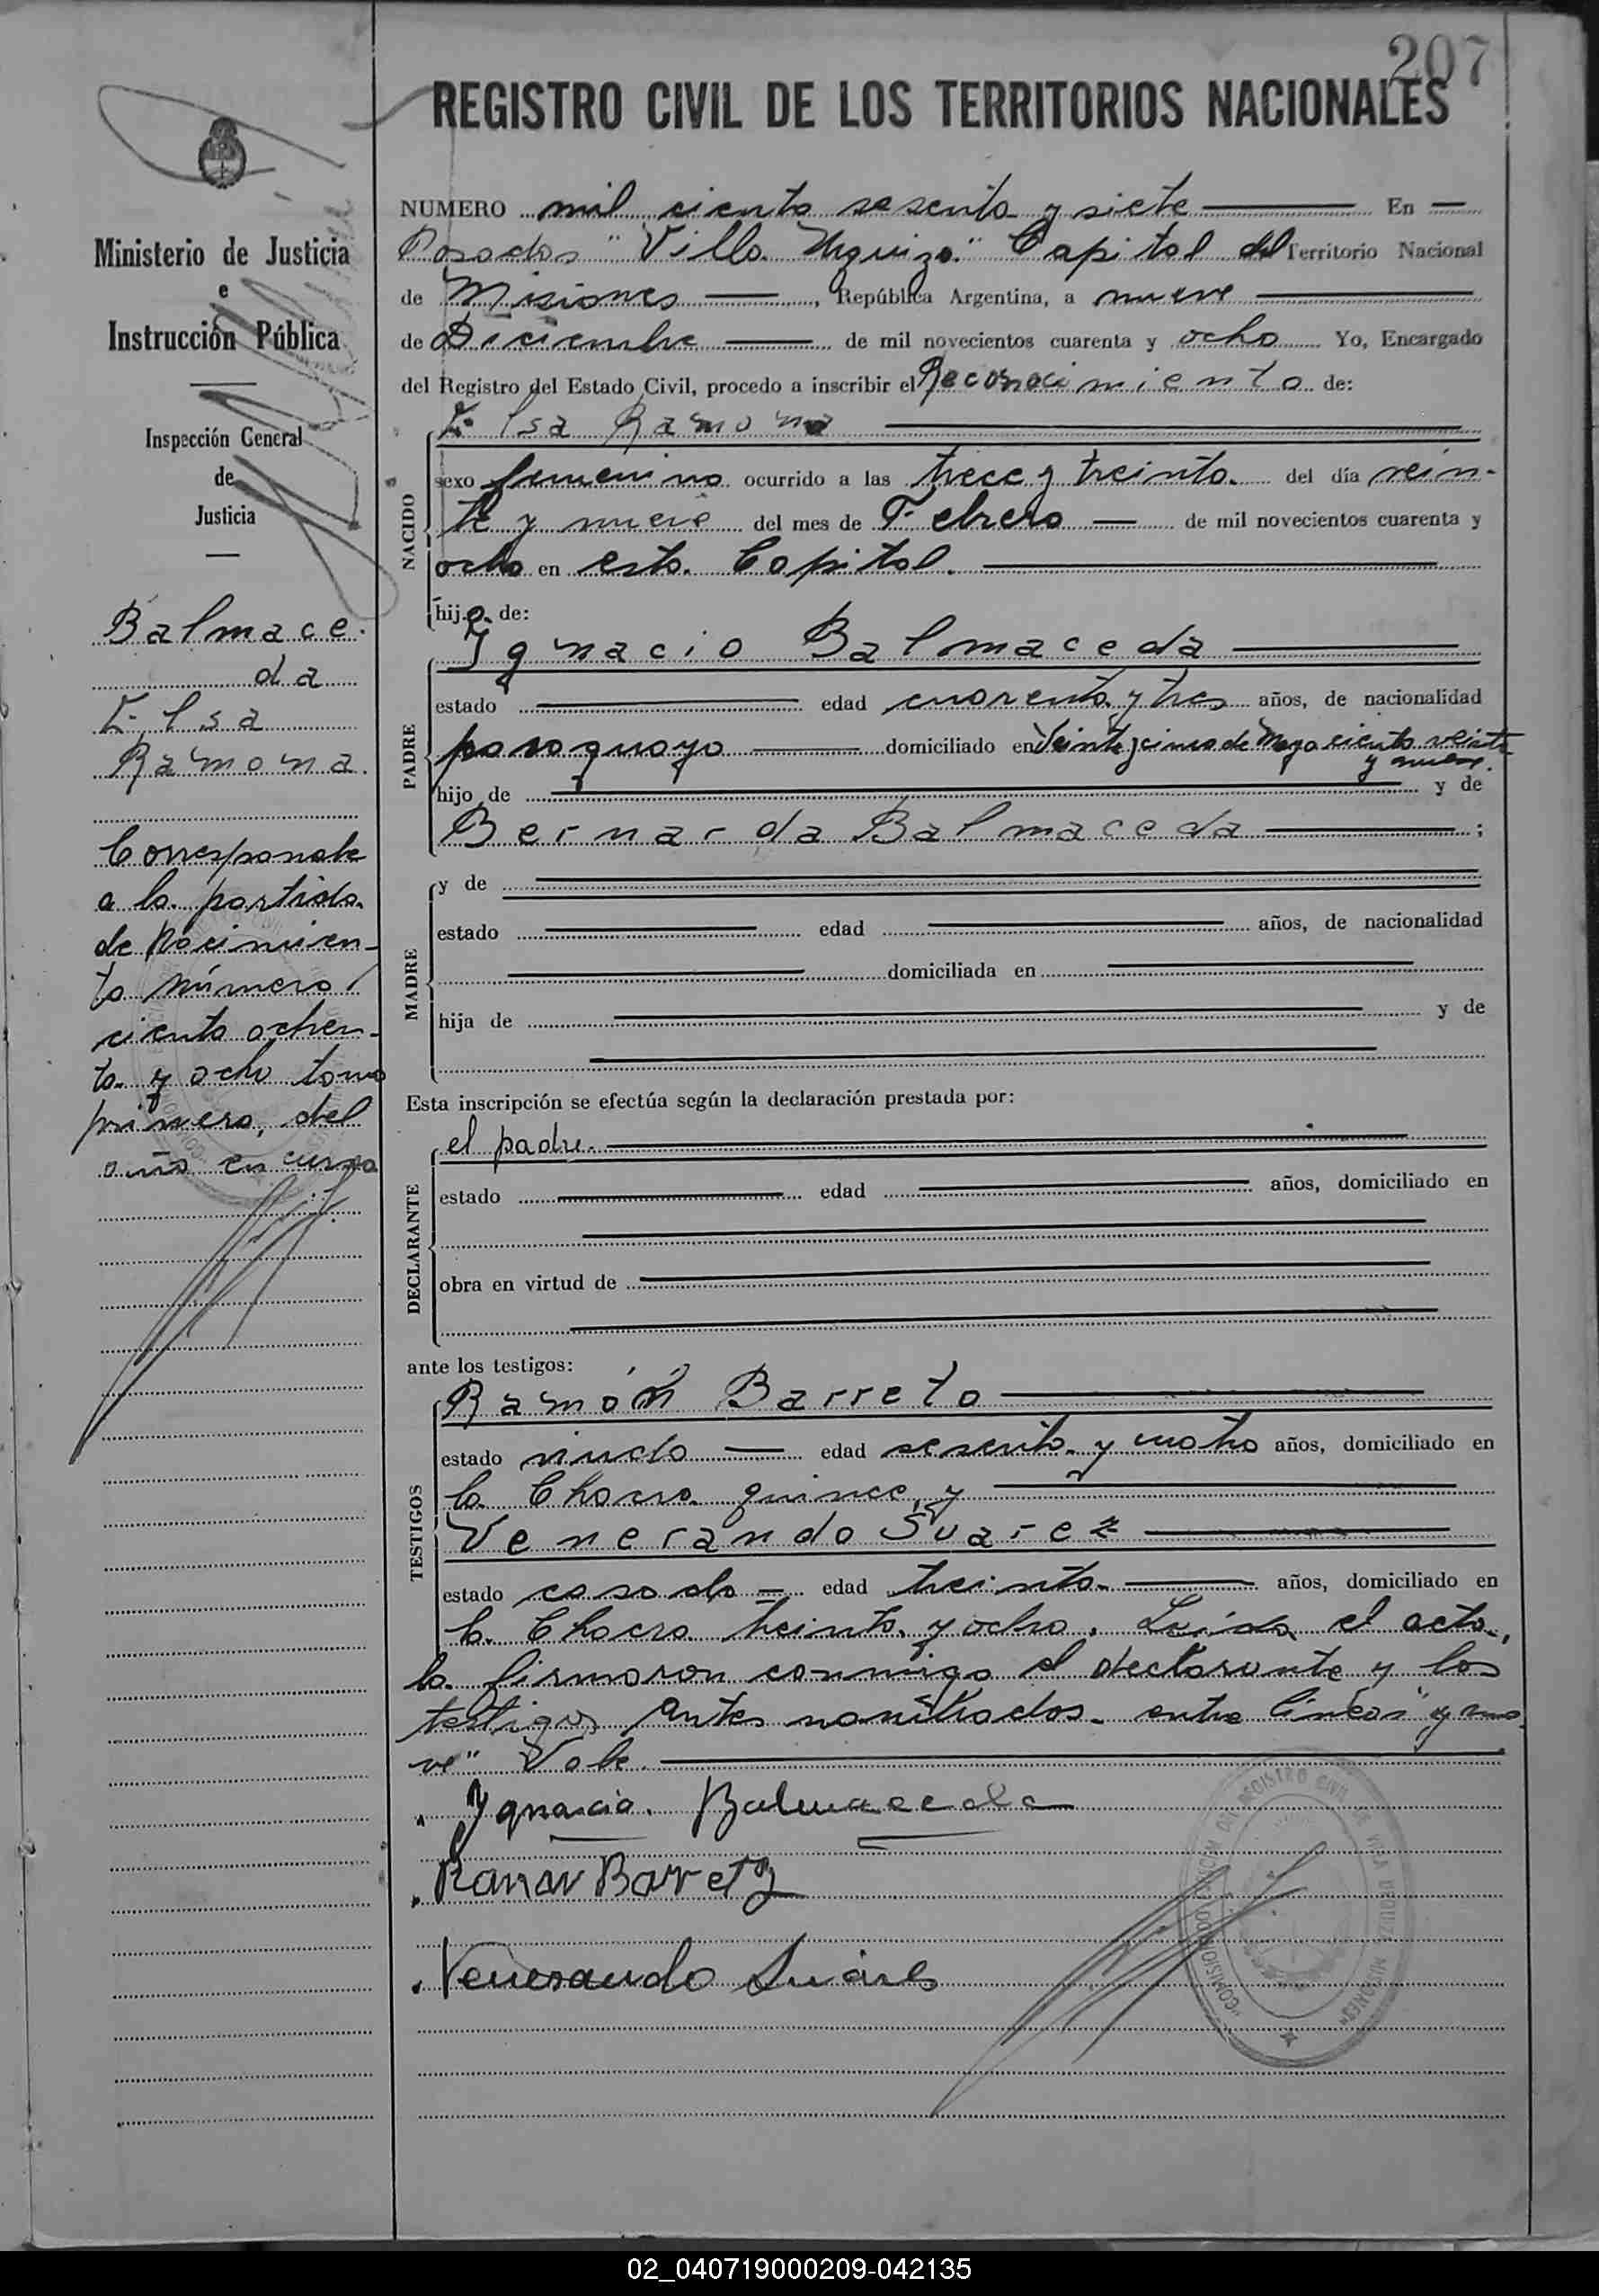 207
REGISTRO CIVIL DE LOS TERRITORIOS NACIONALES
Ministerio de Justicia
e
Instrucción Pública
Inspección General
de
Justicia
Balmace-
da
Elsa
Ramona.
Corresponde
a la partida
de Nacimien-
to número
ciento ochen-
ta y ocho, tomo
primero, del
año en curso
NUMERO mil ciento sesenta y siete En
Posadas "Villa Urquiza" Capital del Territorio Nacional
de Misiones, República Argentina, a nueve
de Diciembre de mil novecientos cuarenta y ocho Yo, Encargado
del Registro del Estado Civil, procedo a inscribir el Reconocimiento de:
NACIDO
Elsa Ramona
sexo femenino ocurrido a las trece y treinta del día vein-
te y nueve del mes de Febrero de mil novecientos cuarenta y
ocho en esta Capital.
hija de:
PADRE
Ygnacio Balmaceda
estado edad cuarenta y tres años, de nacionalidad
paraguayo domiciliado en Veinte y cinco de Mayo ciento veinte
y nueve.
hijo de y de
Bernarda Balmaceda ;
MADRE
y de
estado edad años, de nacionalidad
domiciliada en
hija de y de
Esta inscripción se efectúa según la declaración prestada por:
DECLARANTE
el padre.
estado edad años, domiciliado en
obra en virtud de
ante los testigos:
TESTIGOS
Ramón Barreto
estado viudo edad sesenta y cuatro años, domiciliado en
la Chacra quince, y
Venerando Suarez
estado casado edad treinta años, domiciliado en
la Chacra treinta y ocho. Leída el acta,
la firmaron conmigo el declarante y los
testigos antes nombrados. entre líneas "y nue
ve" Vale.
Ygnacio Balmaceda
Ramon Bareto
Venerando Suares
REGISTRO CIVIL DE VILLA URQUIZA MISIONES
02_040719000209-042135